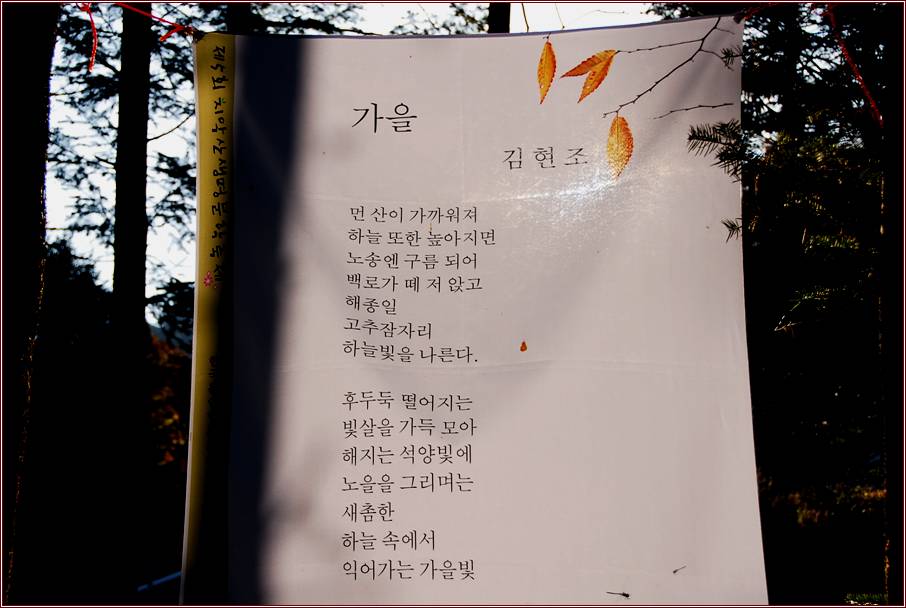 제5회 치악산생명문학축제
가을
김현조
먼 산이 가까워져
하늘 또한 높아지면
노송엔 구름 되어
백로가 떼 저 앉고
해종일
고추잠자리
하늘빛을 나른다.
후두둑 떨어지는
빛살을 가득 모아
해지는 석양빛에
노을을 그리며는
새촘한
하늘 속에서
익어가는 가을빛